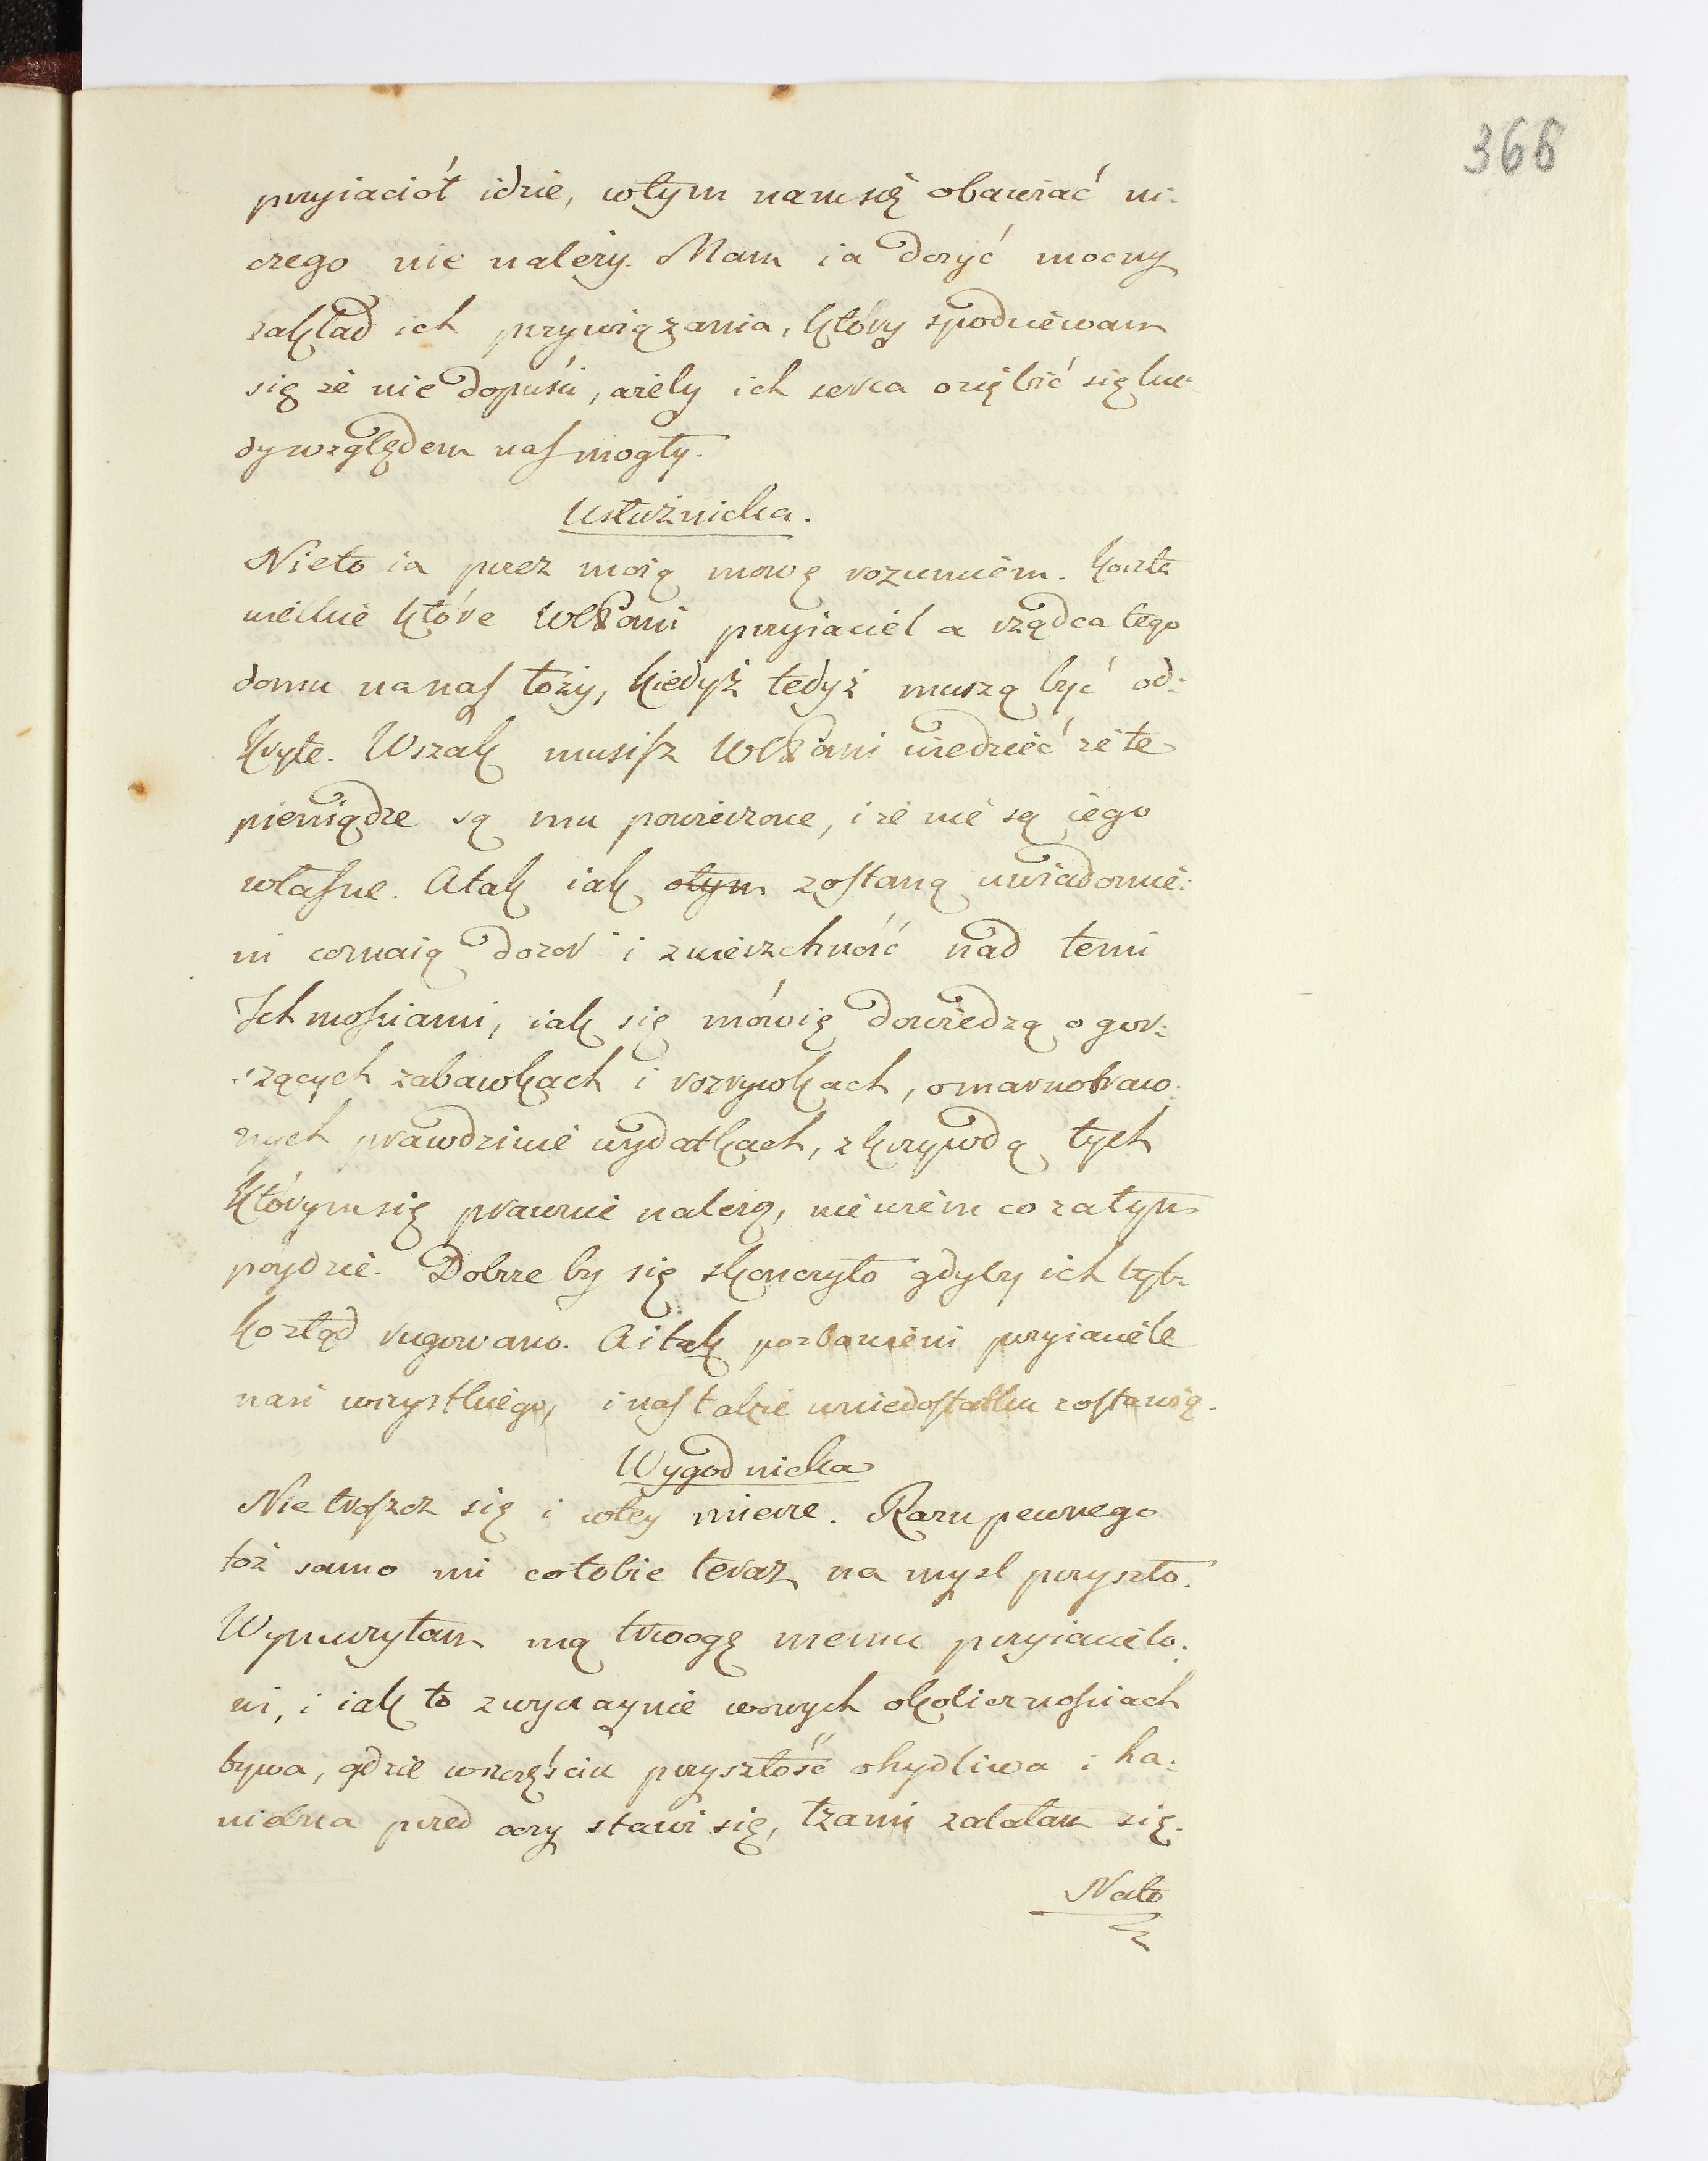 368
przyiaciół idzie, wtym nam się obawiać ni-
czego nie należy. Mam ia dosyć mocny
zakład ich przywiązania, który spodziewam
się że nie dopuści, ażeby ich serca oziębić się kie-
dy względem nas mogły.
Usłużnicka.
Nieto ia przez moią mowę rozumiem. Koszta
wielkie które WPani przyiaciel a rządca tego
domu nanas łoży, kiedyż tedyż muszą być od-
kryte. Wszak musisz WPani wiedzieć że te
pieniądze są mu powierzone, i że nie są iego
własne. Atak iak otym zostaną uwiadomie-
ni comaią dozor i zwierzchność nad temi
Ichmościami, iak się mówię dowiedzą o gor-
szących zabawkach i rozrywkach, omarnotraw-
nych prawdziwie wydatkach, z krzywdą tych
którym się prawnie należą, niewiem co zatym
poydzie. Dobrze by się skonczyło gdyby ich tyl-
ko ztąd rugowano. Ai tak pozbawieni przyiaciele
nasi wszystkiego, i nas także wniedostatku zostawią.
Wygodnicka
Nie troszcz się i wtey mierze. Razu pewnego
toż samo mi cotobie teraz na mysl przyszło.
Wynurzyłam mą trwogę memu przyiacielo-
wi, i iak to zwyczaynie wowych okolicznościach
bywa, gdzie wszczęściu przyszłość ohydliwa i ha-
niebna przed oczy stawi się, łzami zalałam się.
Nato